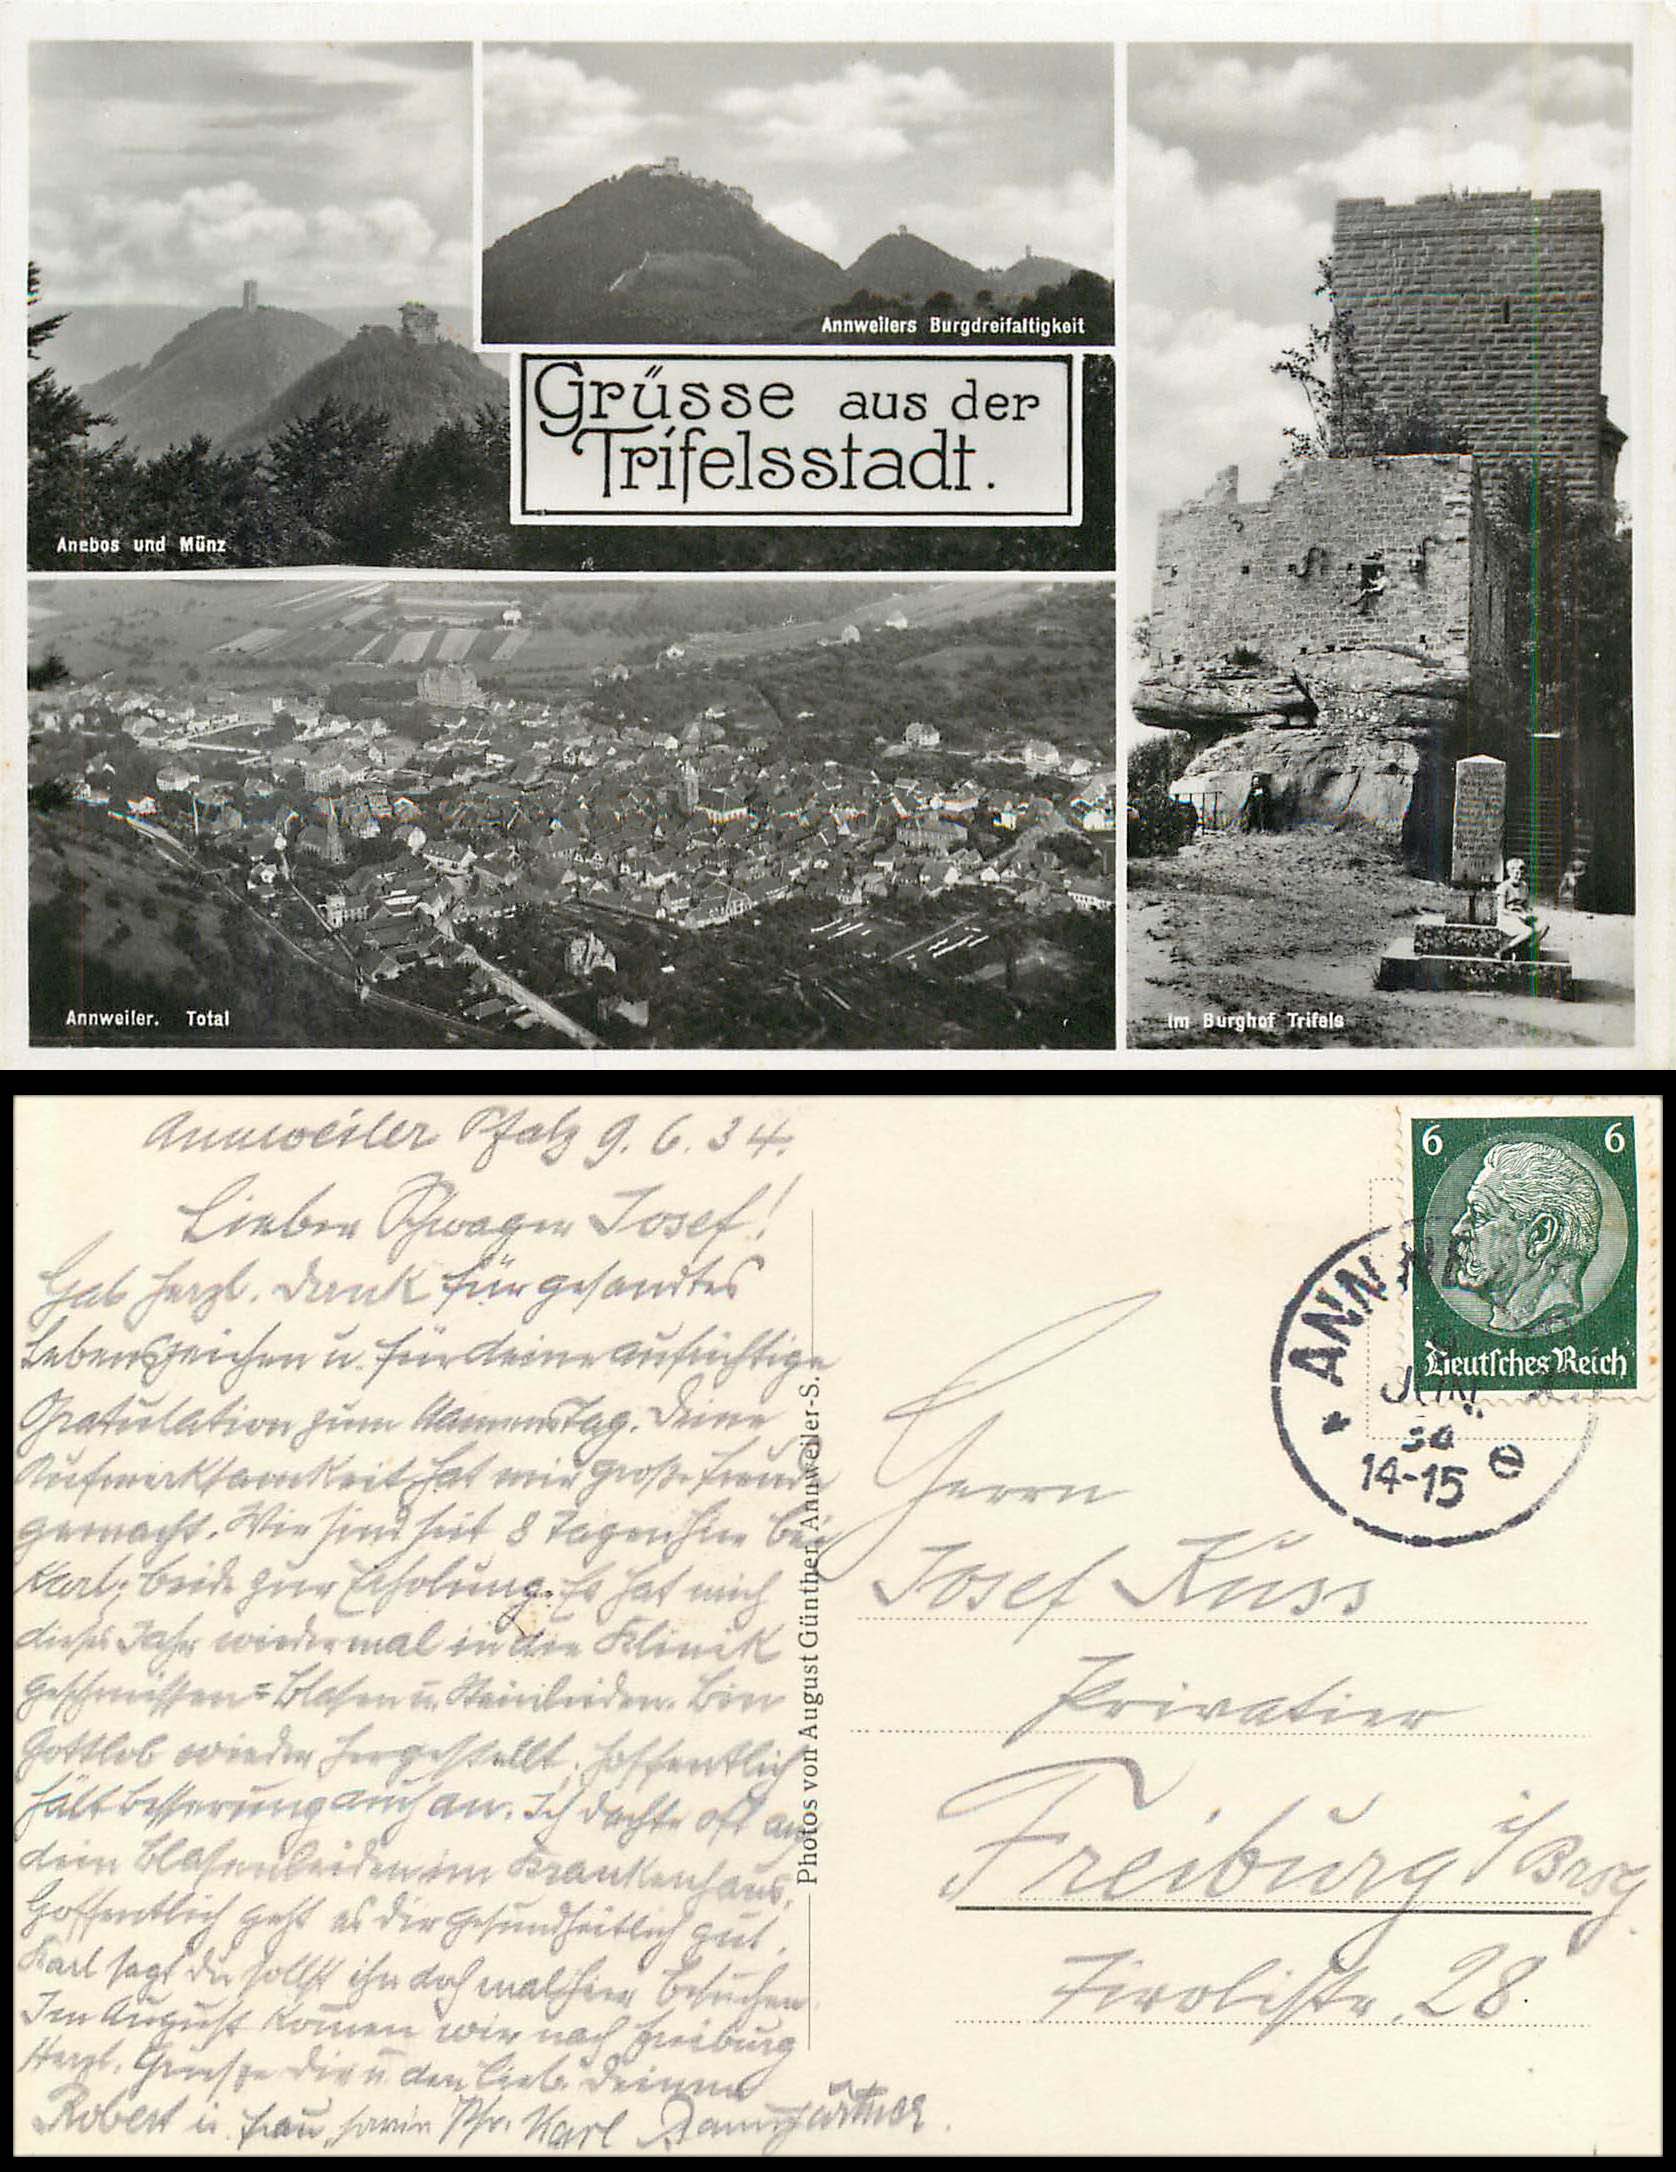 Annweilers Burgdreifaltigkeit
Grüsse aus der
Trifelsstadt.
Anebos und Münz
Annweiler. Total
Im Burghof Trifels
Annweiler Pfalz 9. 6. 34.
Lieber Schwager Josef!
Hab herzl. Dank für gesandtes
Lebenszeichen u. für deine aufrichtige
Gratulation zum Namenstag. Deine
Aufmerksamkeit hat mir große Freude
gemacht. Wir sind seit 8 Tagen hier bei
Karl; beide zur Erholung. Es hat mich
dieses Jahr wiedermal in die Klinik
geschmissen = Blasen u. Steinleiden. Bin
Gottlob wieder hergestellt, hoffentlich
hält Besserung auch an. Ich dachte oft an
dein Blasenleiden im Krankenhaus.
Hoffentlich geht es dir gesundheitlich gut.
Karl sagt du sollst ihn doch mal hier besuchen.
Im August komen wir nach Freiburg
Herzl. Grüsse Dir u. den Lieb. Deinen
Robert u. Frau, sowie Pfr. Karl
Photos von August Günther, Annweiler-S.
6 6
Deutsches Reich
ANNW
14-15 e
Herrn
Josef Kuss
Privatier
Freiburg i/Brsg.
Tirolistr. 28.